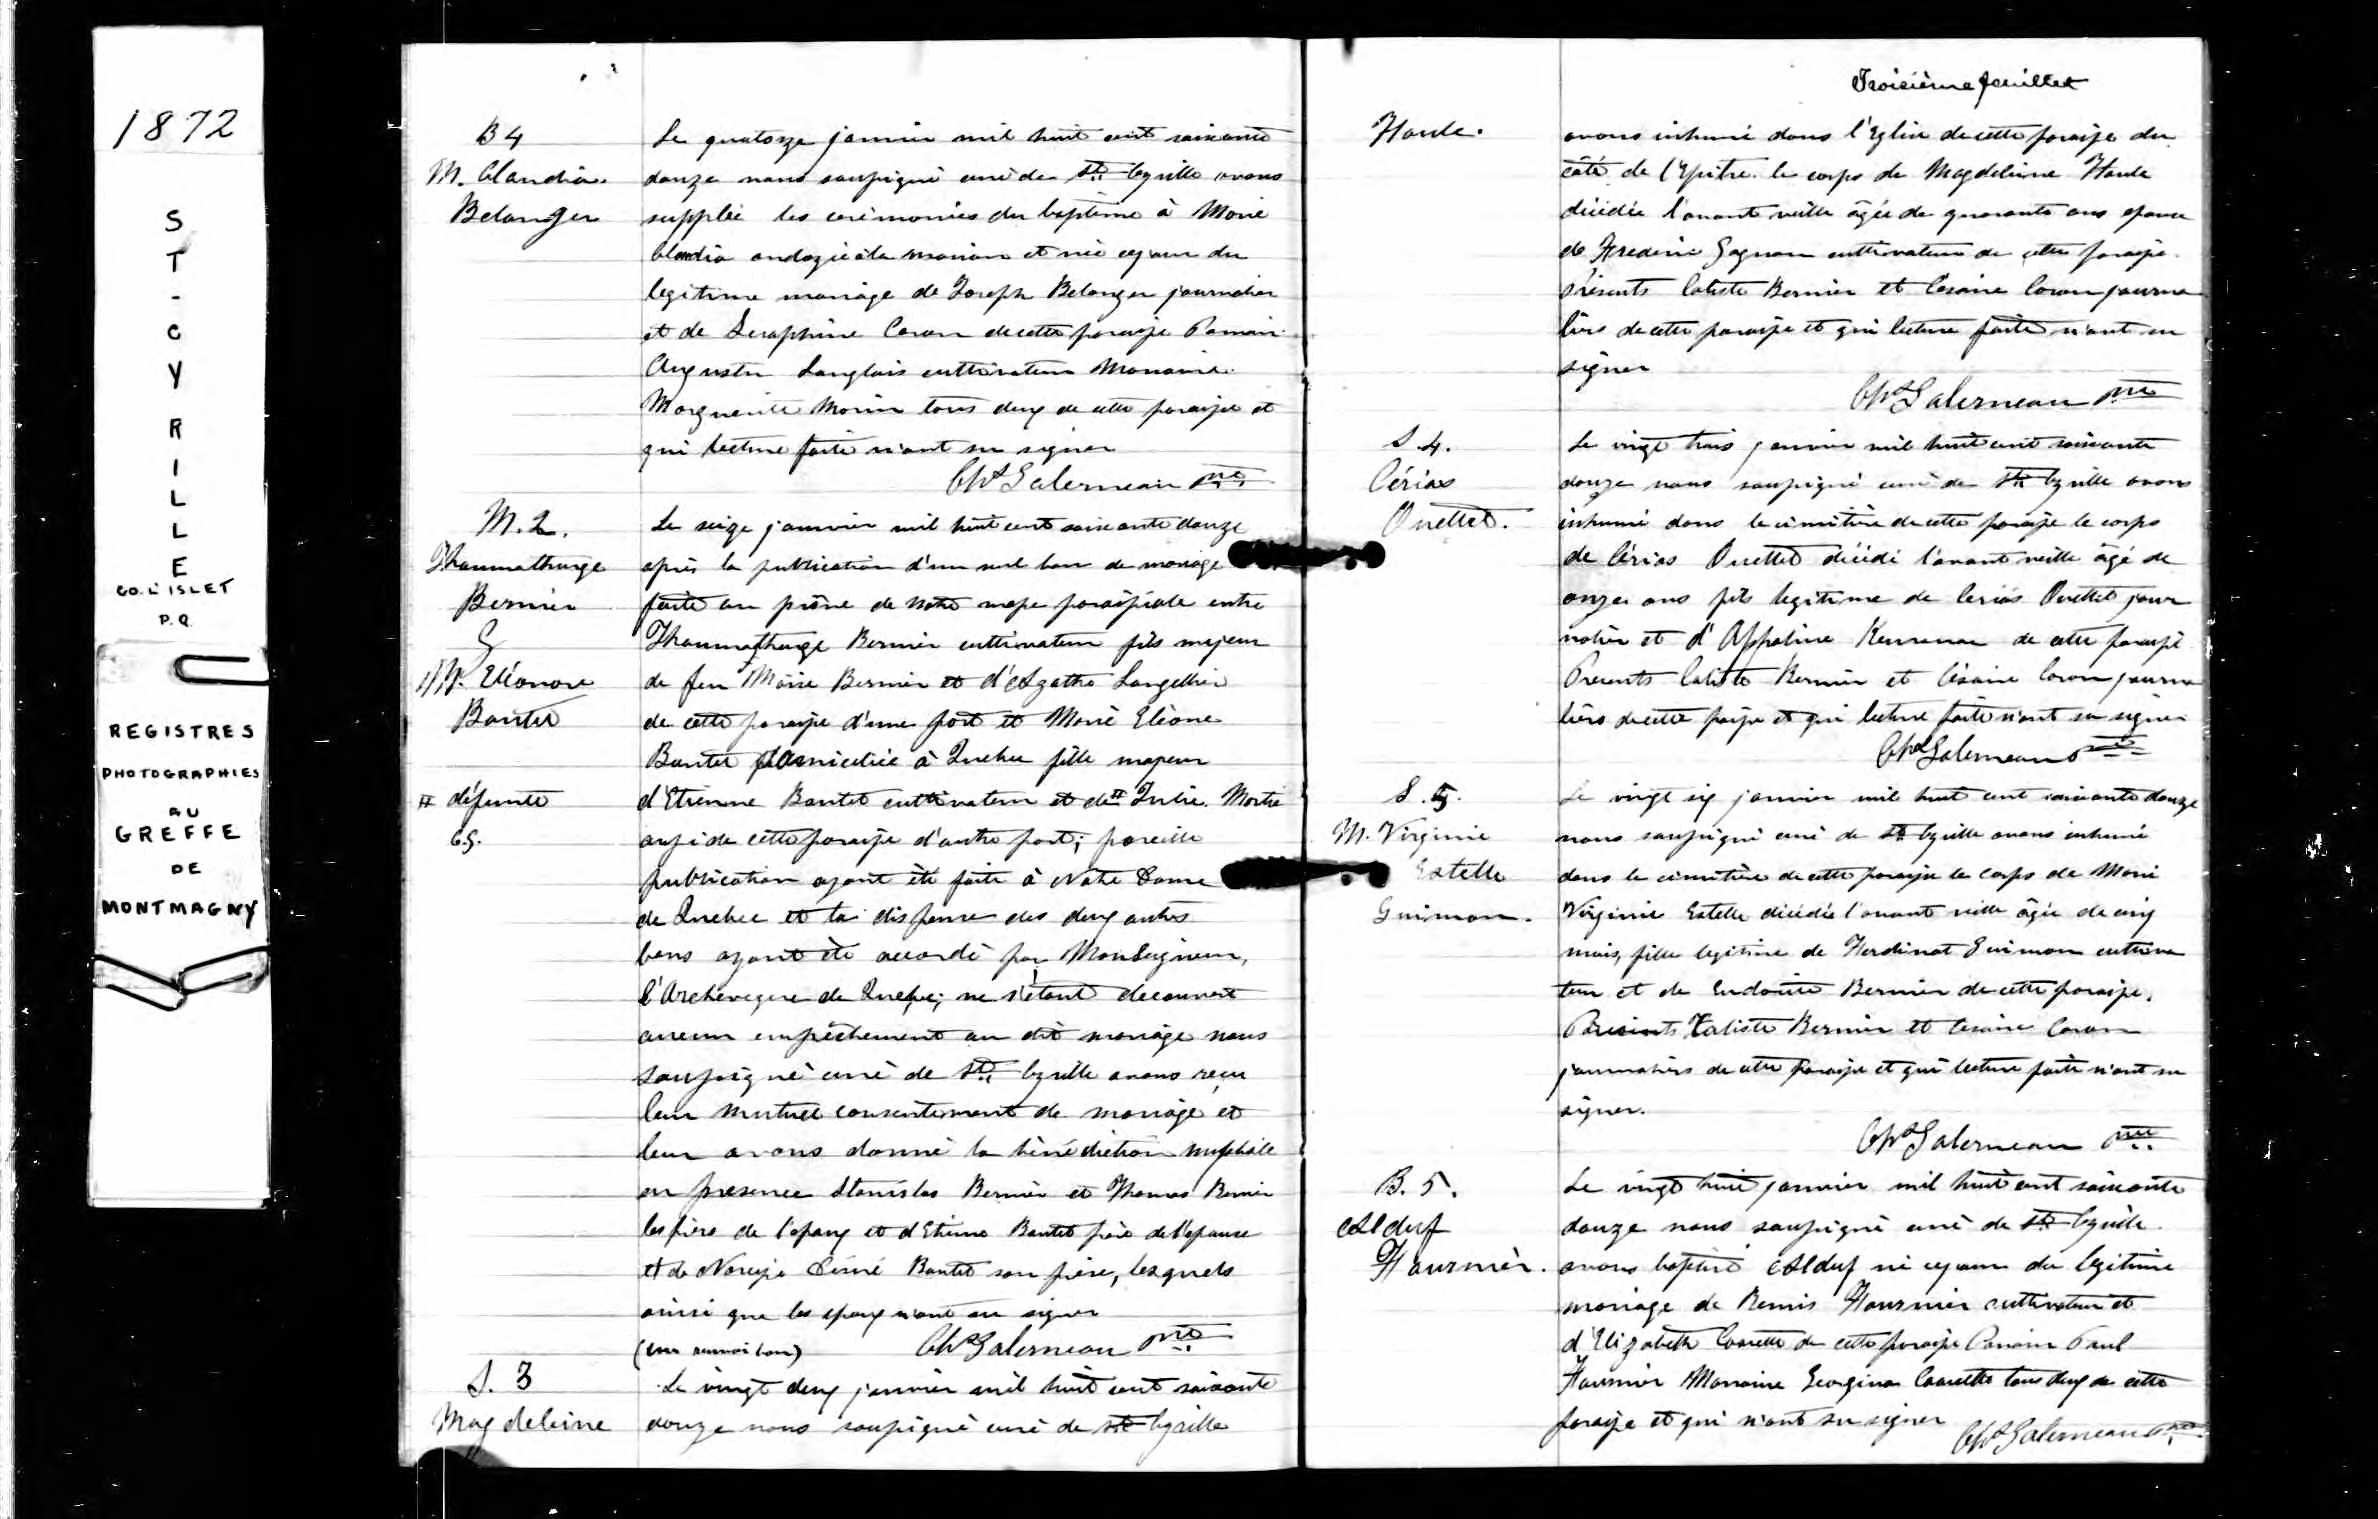 1872
ST-CYRILLE
CO. L'ISLET
P.Q.
REGISTRES
PHOTOGRAPHIES
AU
GREFFE
DE
MONTMAGNY
B 4
M. Claudia
Belanger
Le quatorze janvier mil huit cent soixante
douze nous soussigné curé de St. Cyrille avons
supplée les cérémonies du baptême à Marie
Claudia ondoyée à la maison et née ce jour du
legitime mariage de Joseph Belanger journalier
et de Seraphine Caron de cette paroisse Parrain
Augustin Langlois cultivateur Marraine
Marguerite Morin tous deux de cette paroisse et
qui lecture faite n'ont su signer
Chs Galerneau Ptre
M. 2.
Thaumathurge
Bernier
&
M. Eléonore
Boutet
# défunte
C.G.
Le seize janvier mil huit cent soixante douze
après la publication d'un seul ban de mariage
faite au prône de notre messe paroissiale entre
Thaumathurge Bernier cultivateur fils majeur
de feu Moïse Bernier et d'Agathe Langellier
de cette paroisse d'une part et Marie Eléone
Boutet domiciliée à Quebec fille majeur
d'Etienne Boutet cultivateur et de # Julie
aussi de cette paroisse d'autre part; pareille
publication ayant été faite à Notre Dame
de Quebec et la dispense des deux autres
bans ayant été accordé par Monseigneur,
l'Archevêque de Quebec; ne s'étant decouvert
aucun empêchement au dit mariage nous
soussigné curé de St. Cyrille avons reçu
leur mutuel consentement de mariage et
leur avons donné la bénédiction nuptiale
en presence Stanislas Bernier et Thomas Bernier
les frère de l'epoux et d'Etienne Boutet père de l'epouse
et de Narcisse Boutet son frère, lesquels
ainsi que les epoux n'ont su signer
(un renvoi bon) Chs Galerneau Ptre
S. 3
Magdeleine
Le vingt deux janvier mil huit cent soixante
douze nous soussigné curé de St Cyrille
Troisième feuillet
Houle.
avons inhumé dans l'Eglise de cette paroisse du
côté de l'Epitre le corps de Magdeleine Houle
décédée l'avant veille âgée de quarante ans epouse
de Frederic Gagnon cultivateur de cette paroisse.
Présents Caliste Bernier et Césaire Caron journa
liers de cette paroisse et qui lecture faite n'ont su
signer
Chs Galerneau Ptre
S 4.
Cérias
Ouellet.
Le vingt trois janvier mil huit cent soixante
douze nous soussigné curé de St Cyrille avons
inhumé dans le cimetière de cette paroisse le corps
de Cérias Ouellet décédé l'avant veille âgé de
onze ans fils legitime de Cerias Ouellet jour
nalier et d'Appoline de cette paroisse
Presents Caliste Bernier et Césaire Caron journa
liers de cette paroisse et qui lecture faite n'ont su signer
Chs Galerneau Ptre
S. 5.
M. Virginie
Estelle
Guimon.
Le vingt six janvier mil huit cent soixante douze
nous soussigné curé de St Cyrille avons inhumé
dans le cimetière de cette paroisse le corps de Marie
Virginie Estelle décédée l'avant veille âgée de cinq
mois, fille legitime de Ferdinat Guimon cultiva
teur et de Bernier de cette paroisse.
Presents Caliste Bernier et Cesaire Caron
journaliers de cette paroisse et qui lecture faite n'ont su
signer.
Chs Galerneau Ptre
B. 5.
Alduf
Fournier.
Le vingt huit janvier mil huit cent soixante
douze nous soussigné curé de St Cyrille
avons baptisé Alduf né ce jour du legitime
mariage de Remis Fournier cultivateur et
d'Elizabeth Caouette de cette paroisse Parrain Paul
Fournier Marraine Georgina Caouette tous deux de cette
paroisse et qui n'ont su signer
Chs Galerneau Ptre